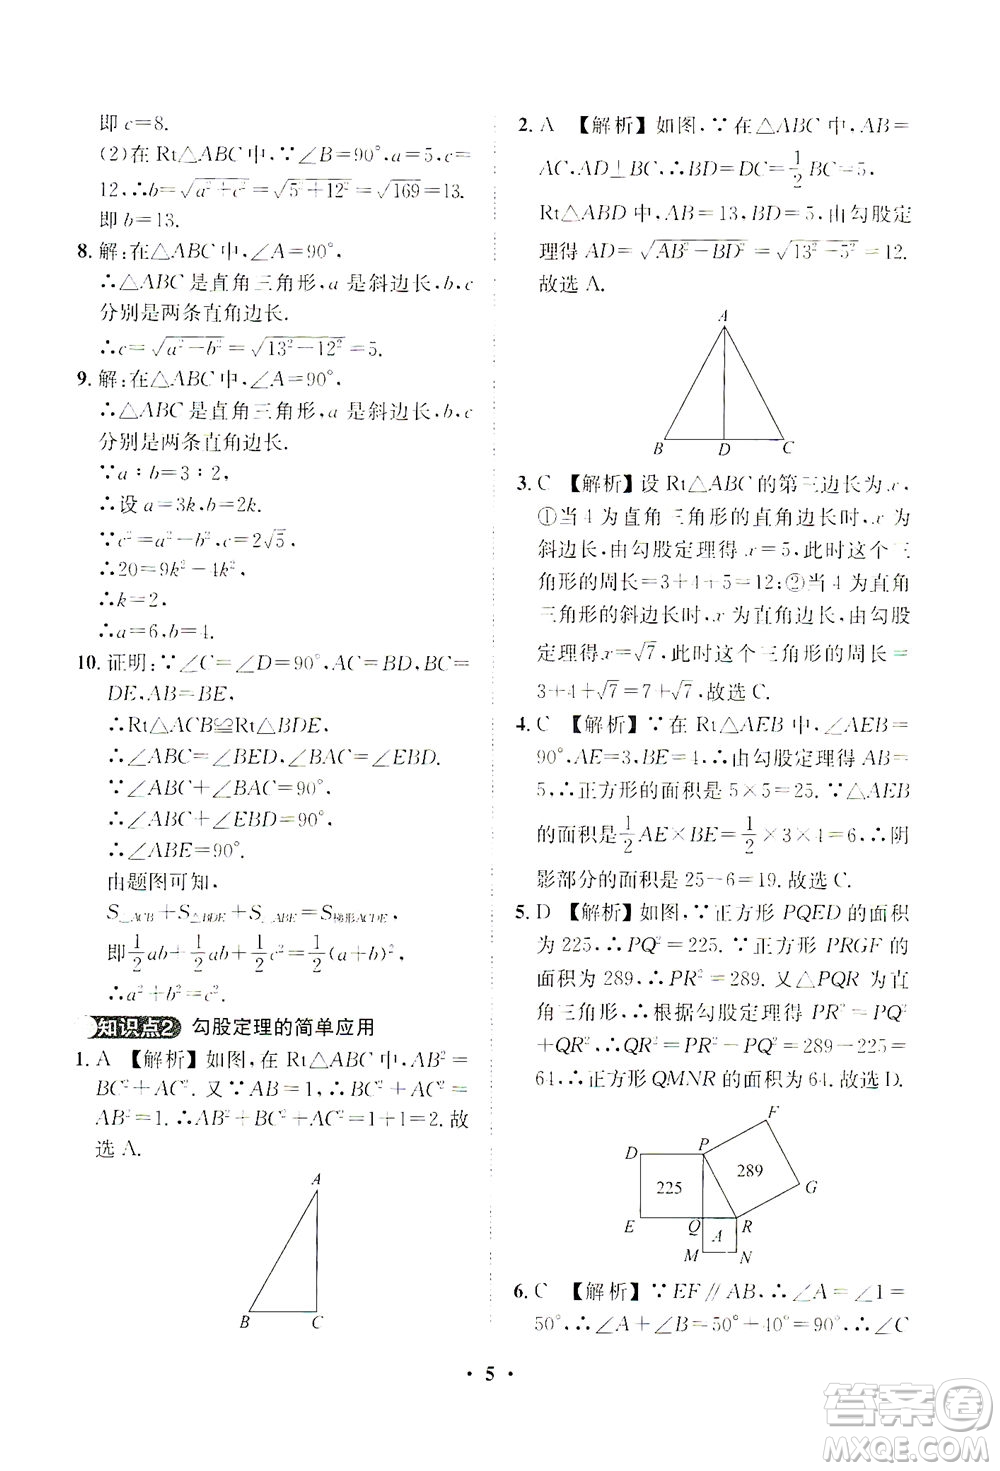 即 c=8.
(2)在 Rt△ABC 中,∵∠B=90°,a=5,c=
12,∴b=√(a²+c²)=√(5²+12²)=√169=13.
即 b=13.
8. 解:在△ABC 中,∠A=90°,
∴△ABC 是直角三角形,a 是斜边长,b,c
分别是两条直角边长.
∴c=√(a²-b²)=√(13²-12²)=5.
9. 解:在△ABC 中,∠A=90°,
∴△ABC 是直角三角形,a 是斜边长,b,c
分别是两条直角边长.
∵a∶b=3∶2,
∴设 a=3k,b=2k.
∵c²=a²-b²,c=2√5,
∴20=9k²-4k²,
∴k=2,
∴a=6,b=4.
10. 证明:∵∠C=∠D=90°,AC=BD,BC=
DE,AB=BE,
∴Rt△ACB≌Rt△BDE,
∴∠ABC=∠BED,∠BAC=∠EBD.
∵∠ABC+∠BAC=90°,
∴∠ABC+∠EBD=90°.
∴∠ABE=90°.
由题图可知,
S△ACB+S△BDE+S△ABE=S梯形ACDE,
即1/2ab+1/2ab+1/2c²=1/2(a+b)²,
∴a²+b²=c².
知识点2 勾股定理的简单应用
1. A 【解析】如图,在 Rt△ABC 中,AB²=
BC²+AC². 又∵AB=1,∴BC²+AC²=
AB²=1.∴AB²+BC²+AC²=1+1=2. 故
选 A.
A
B C
2. A 【解析】如图,∵在△ABC 中,AB=
AC,AD⊥BC,∴BD=DC=1/2BC=5. 在
Rt△ABD 中,AB=13,BD=5,由勾股定
理得 AD=√(AB²-BD²)=√(13²-5²)=12.
故选 A.
A
B D C
3. C 【解析】设 Rt△ABC 的第三边长为 x,
①当 4 为直角三角形的直角边长时,x 为
斜边长,由勾股定理得 x=5,此时这个三
角形的周长=3+4+5=12;②当 4 为直角
三角形的斜边长时,x 为直角边长,由勾股
定理得 x=√7,此时这个三角形的周长=
3+4+√7=7+√7,故选 C.
4. C 【解析】∵在 Rt△AEB 中,∠AEB=
90°,AE=3,BE=4,∴由勾股定理得 AB=
5,∴正方形的面积是 5×5=25. ∵△AEB
的面积是1/2AE×BE=1/2×3×4=6,∴阴
影部分的面积是 25-6=19. 故选 C.
5. D 【解析】如图,∵正方形 PQED 的面积
为 225,∴PQ²=225. ∵正方形 PRGF 的
面积为 289,∴PR²=289. 又△PQR 为直
角三角形,∴根据勾股定理得 PR²=PQ²
+QR²,∴QR²=PR²-PQ²=289-225=
64,∴正方形 QMNR 的面积为 64. 故选 D.
F
D P
225 289
G
E Q R
A
M N
6. C 【解析】∵EF∥AB,∴∠A=∠1=
50°,∴∠A+∠B=50°+40°=90°,∴∠C
• 5 •
答案圈
MXQE.COM